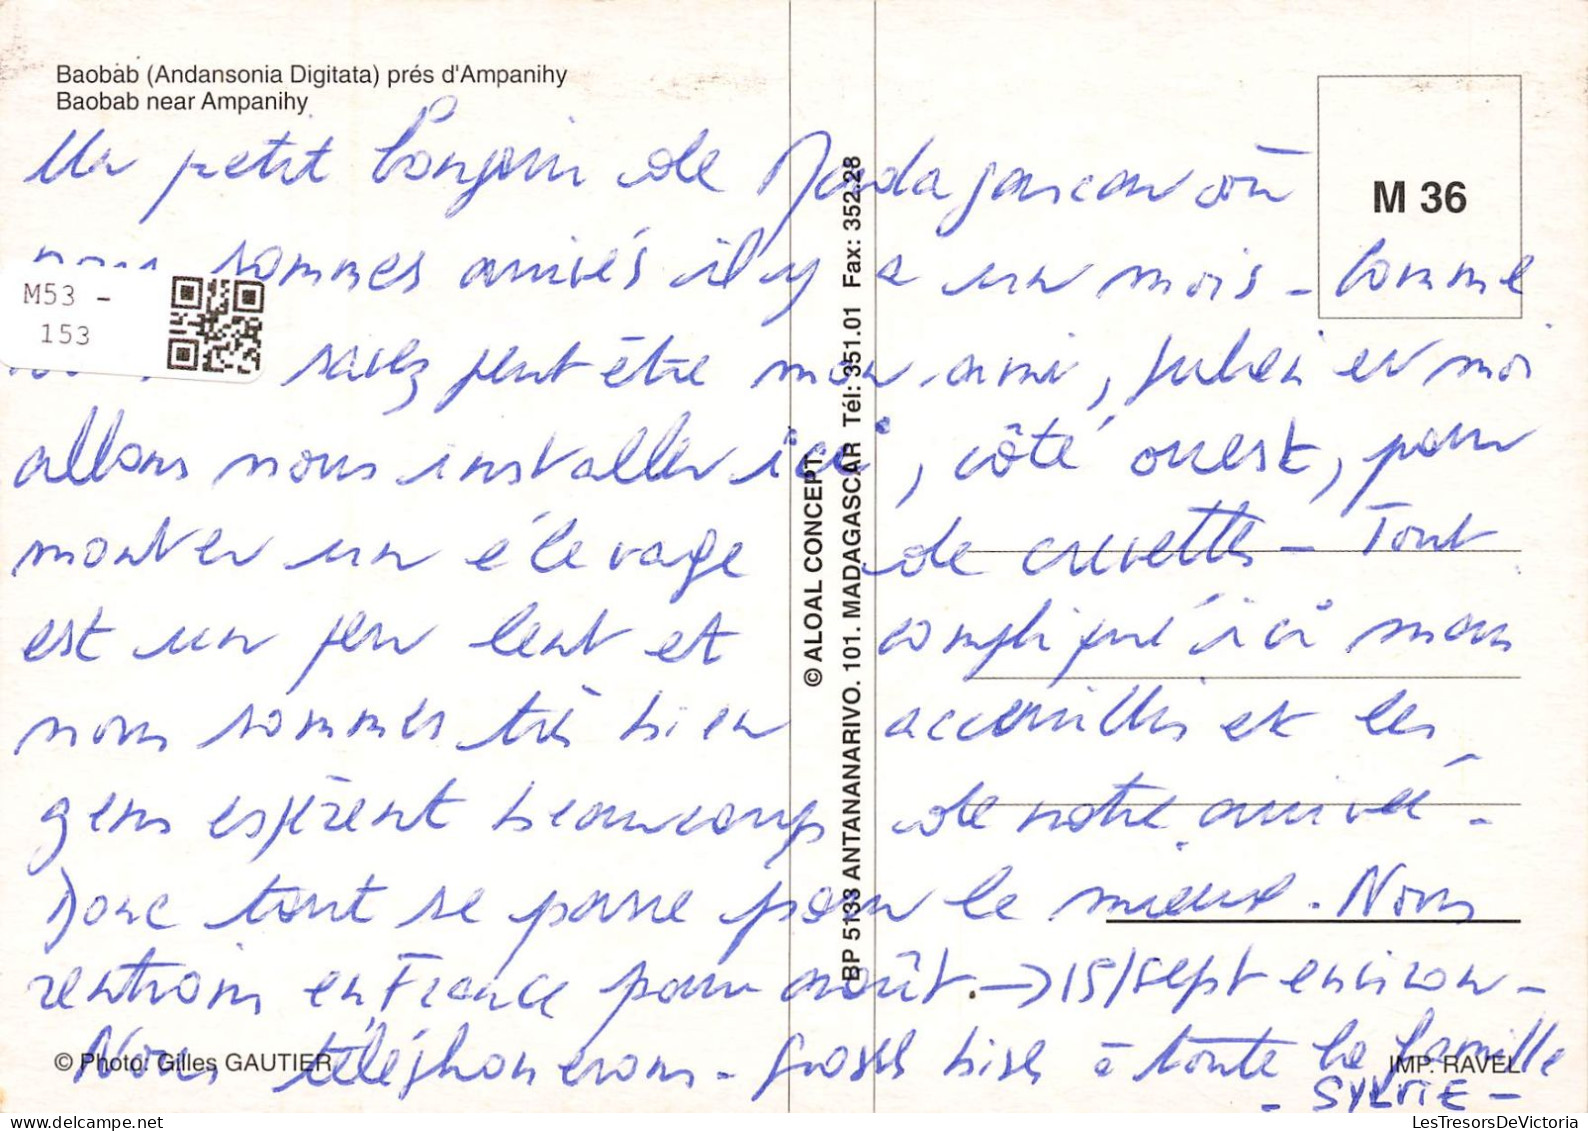 Baobab (Andansonia Digitata) prés d'Ampanihy
Baobab near Ampanihy
M 36
M53 -
153
Un petit bonjour de Madagascar où
nous sommes arrivés il y a un mois - Comme
savez peut être mon ami, Julien et moi
allons nous installer ici, côté ouest, pour
monter un élevage de crevettes - Tout
est un peu lent et compliqué ici mais
nous sommes très bien accueillis et les
gens espèrent beaucoup de notre arrivée -
Donc tout se passe pour le mieux. Nous
rentrons en France pour août. → 15/sept environ -
Nous téléphonerons - Grosses bises à toute la famille
- SYLVIE -
© ALOAL CONCEPT.
BP 5133 ANTANANARIVO. 101. MADAGASCAR Tél: 351.01 Fax: 352.28
© Photo: Gilles GAUTIER
IMP. RAVEL
LesTresorsDeVictoria